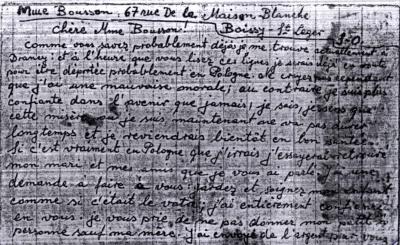 Mme Bousson. 67 rue De la Maison Blanche
Chère Mme Bousson! Boissy-St Leger
S-O.
Comme vous savez probablement déjà, je me trouve actuellement à
Drancy et à l'heure que vous lisez ces lignes je serais déjà en route
pour être déportée probablement en Pologne. Ne croyez pas cependant
que j'ai une mauvaise morale; au contraire je suis plus
confiante dans l'avenir que jamais; je sais, je sens que
cette misère je suis maintenant ne va pas durer
longtemps et je reviendrais bientôt en bon santé.
Si c'est vraiment en Pologne que j'irais, j'essayerai retrouver
mon mari et mes amis que je vous ai parlé. J'ai une
demande à faire à vous: gardez et soignez mon enfant
comme si c'était le votre; j'ai entièrement confiance
en vous. je vous prie de ne pas donner mon petit à
personne sauf ma mère. J'ai envoyé de l'argent pour vous